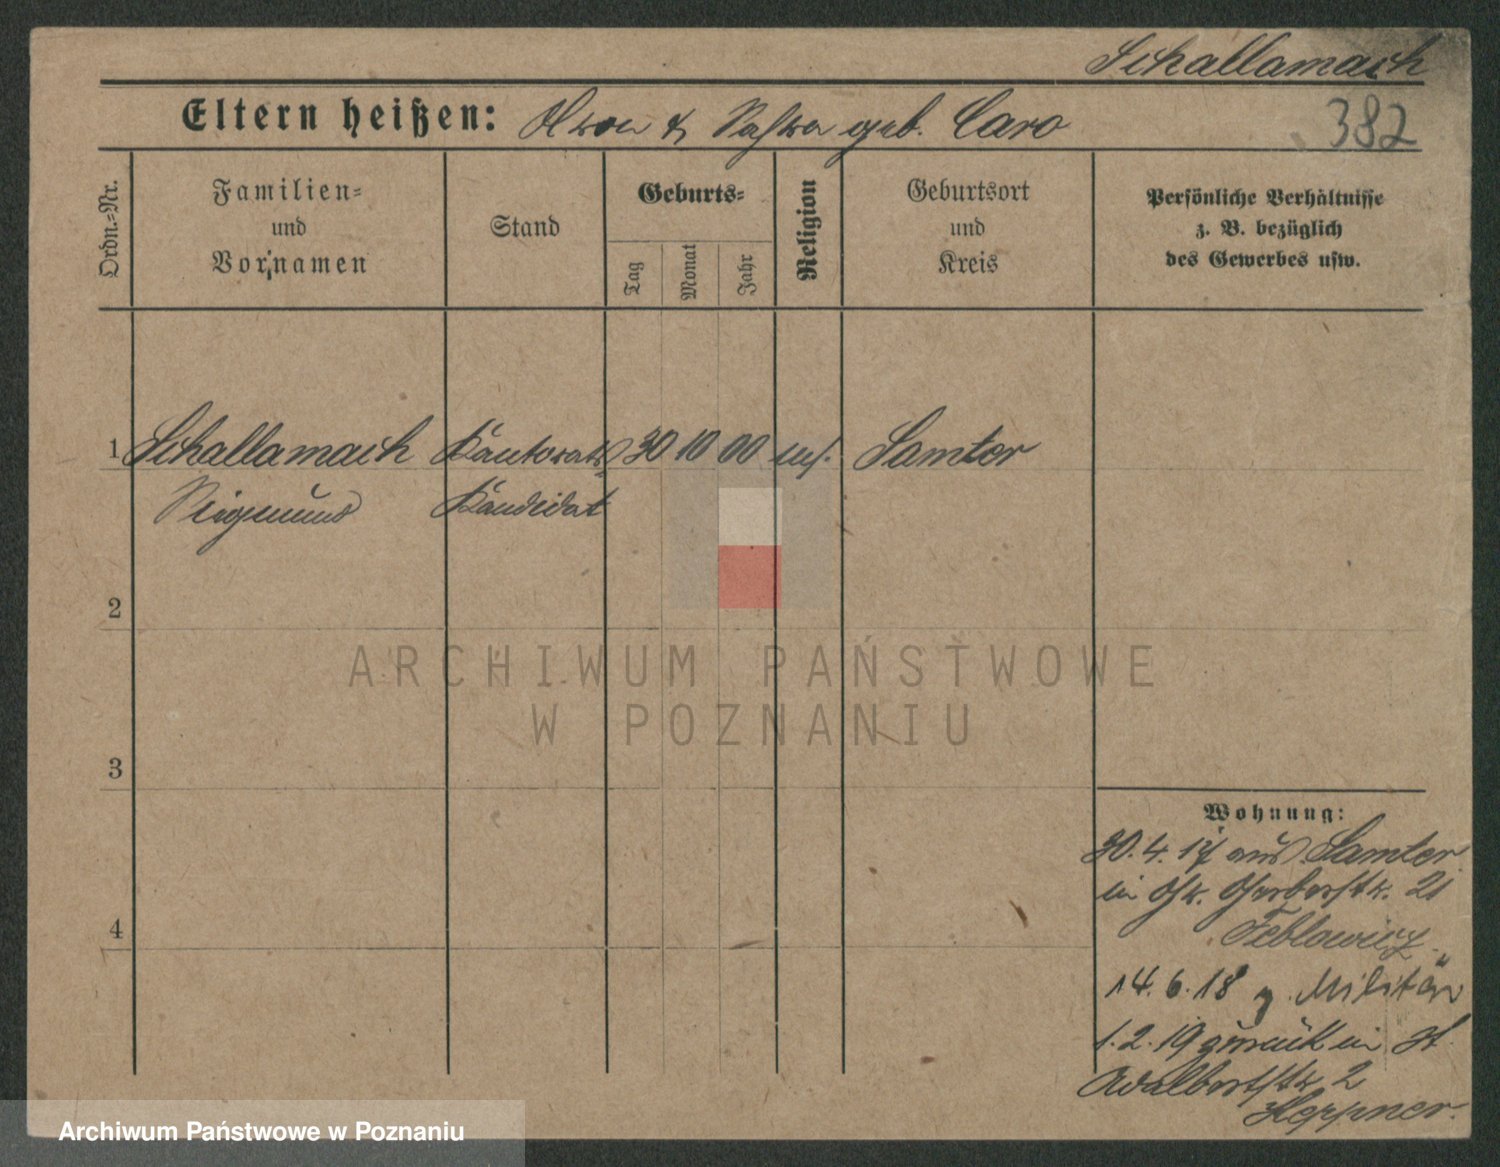 Schallamach
382
Eltern heißen: & geb. Caro
Ordn.-Nr.
Familien-
und
Vornamen
Stand
Geburts-
Tag
Monat
Jahr
Religion
Geburtsort
und
Kreis
Persönliche Verhältnisse
z. B. bezüglich
des Gewerbes usw.
1 Schallamach Kantorats 30 10 00 Samter
Kandidat
2
3
4
Wohnung:
30.4.17 aus Samter
in Gr. Gerberstr. 21
14.6.18 z. Militär
1.2.19 zurück in St.
Adalbertstr. 2
Heppner.
ARCHIWUM PAŃSTWOWE
W POZNANIU
Archiwum Państwowe w Poznaniu